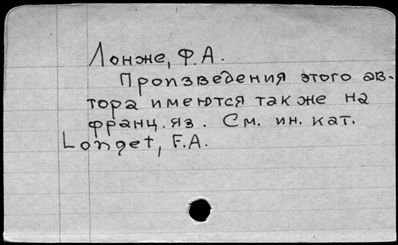 Лонже, Ф.А.
Произведения этого ав-
тора имеются также на
франц. яз. См. ин. кат.
Longet, F.A.